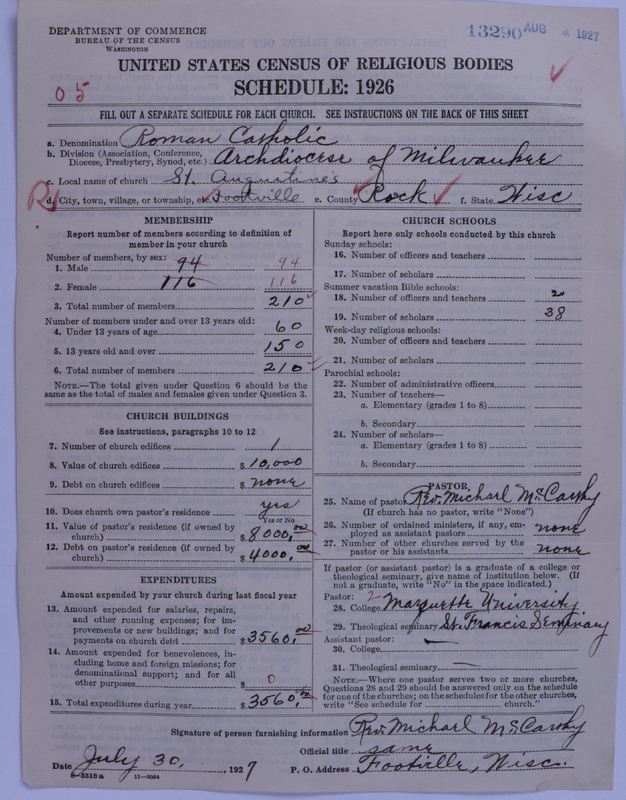 DEPARTMENT OF COMMERCE
BUREAU OF THE CENSUS
WASHINGTON
13290 AUG 4 1927
UNITED STATES CENSUS OF RELIGIOUS BODIES
SCHEDULE: 1926
05
FILL OUT A SEPARATE SCHEDULE FOR EACH CHURCH. SEE INSTRUCTIONS ON THE BACK OF THIS SHEET
a. Denomination Roman Catholic
b. Division (Association, Conference, Diocese, Presbytery, Synod, etc.) Archdiocese of Milwaukee
c. Local name of church St. Augustine's
R
d. City, town, village, or township, etc. Footville e. County Rock f. State Wisc
MEMBERSHIP
Report number of members according to definition of
member in your church
Number of members, by sex:
1. Male 94 94
2. Female 116 116
3. Total number of members 210
Number of members under and over 13 years old:
4. Under 13 years of age 60
5. 13 years old and over 150
6. Total number of members 210
NOTE.—The total given under Question 6 should be the
same as the total of males and females given under Question 3.
CHURCH BUILDINGS
See instructions, paragraphs 10 to 12
7. Number of church edifices 1
8. Value of church edifices $ 10,000
9. Debt on church edifices $ none
10. Does church own pastor's residence yes
Yes or No
11. Value of pastor's residence (if owned by
church) $ 8000,00
12. Debt on pastor's residence (if owned by
church) $ 4000,00
EXPENDITURES
Amount expended by your church during last fiscal year
13. Amount expended for salaries, repairs,
and other running expenses; for im-
provements or new buildings; and for
payments on church debt $ 3560,00
14. Amount expended for benevolences, in-
cluding home and foreign missions; for
denominational support; and for all
other purposes $ 0
15. Total expenditures during year $ 3560,00
CHURCH SCHOOLS
Report here only schools conducted by this church
Sunday schools:
16. Number of officers and teachers
17. Number of scholars
Summer vacation Bible schools:
18. Number of officers and teachers 2
19. Number of scholars 38
Week-day religious schools:
20. Number of officers and teachers
21. Number of scholars
Parochial schools:
22. Number of administrative officers
23. Number of teachers—
a. Elementary (grades 1 to 8)
b. Secondary
24. Number of scholars—
a. Elementary (grades 1 to 8)
b. Secondary
PASTOR
25. Name of pastor Rev. Michael McCarthy
(If church has no pastor, write "None")
26. Number of ordained ministers, if any, em-
ployed as assistant pastors none
27. Number of other churches served by the
pastor or his assistants none
If pastor (or assistant pastor) is a graduate of a college or
theological seminary, give name of institution below. (If
not a graduate, write "No" in the space indicated.)
Pastor: 2
28. College Marquette University
29. Theological seminary St. Francis Seminary
Assistant pastor: —
30. College
31. Theological seminary —
NOTE.—Where one pastor serves two or more churches,
Questions 28 and 29 should be answered only on the schedule
for one of the churches; on the schedules for the other churches,
write "See schedule for church."
Signature of person furnishing information Rev. Michael McCarthy
Official title same
Date July 30, 1927 P. O. Address Footville, Wisc.
8-5518a 11-9264